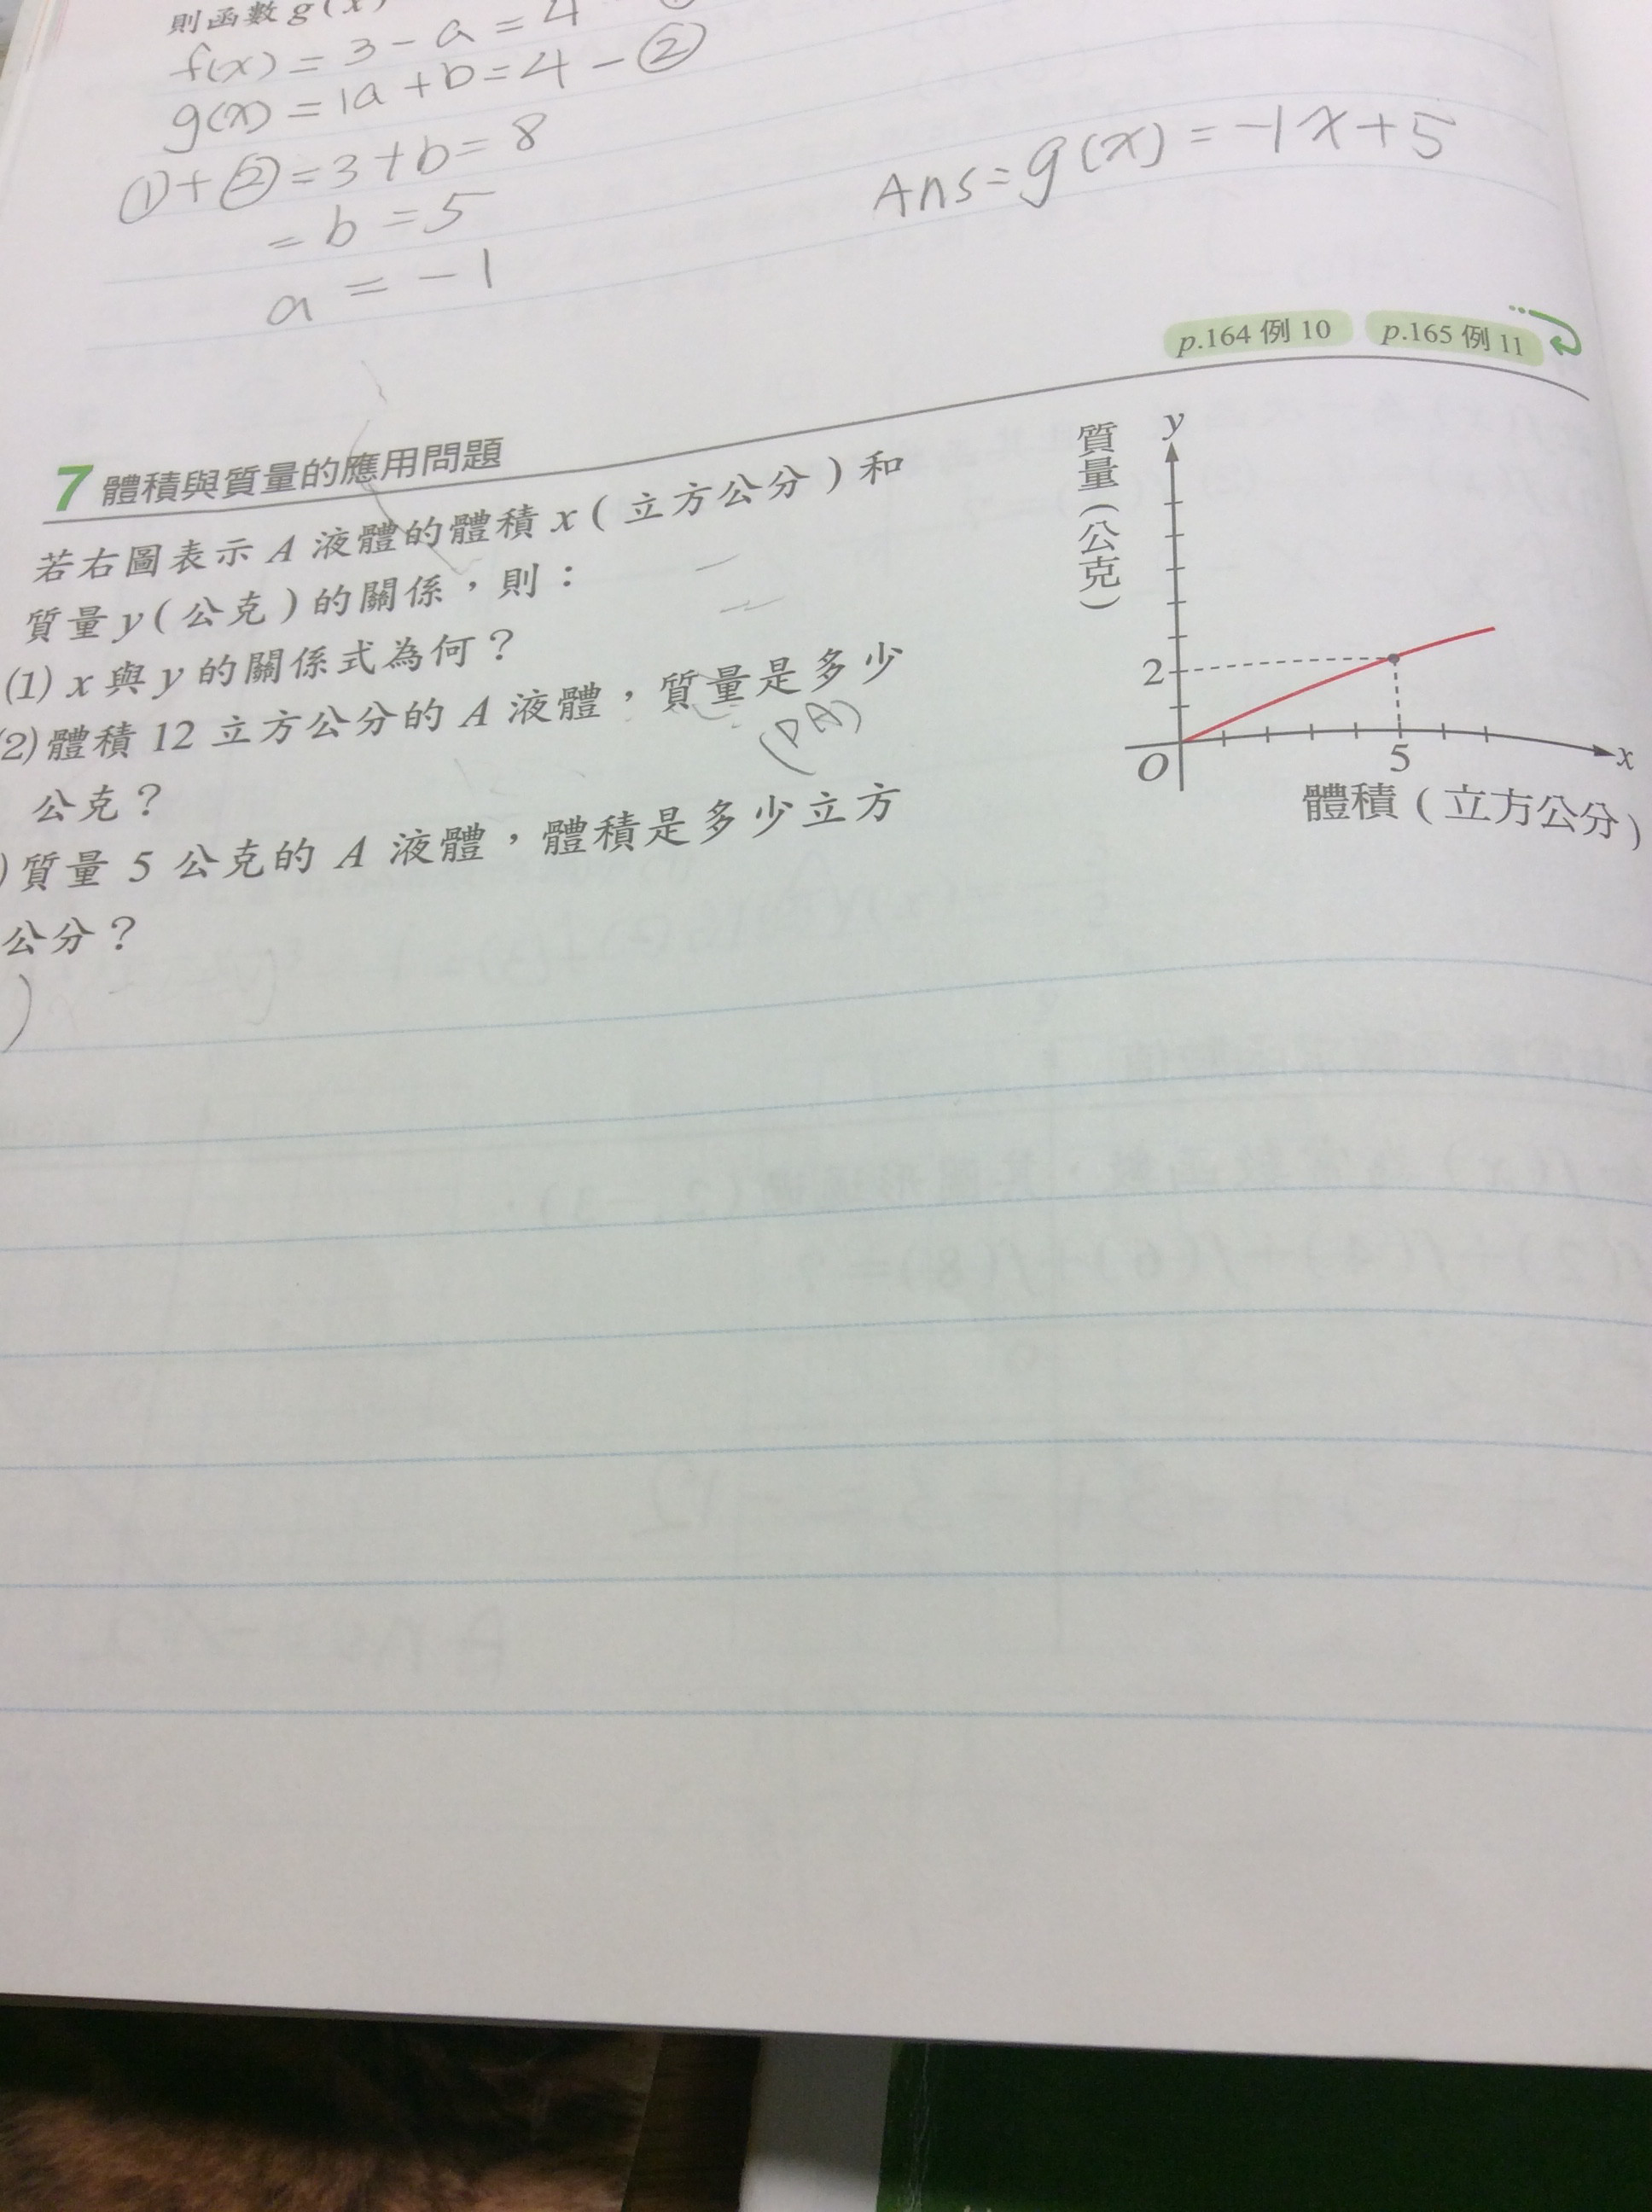 則函數 g(x)
f(x) = 3 - a = 4
g(x) = 1a + b = 4 - ②
① + ② = 3 + b = 8
= b = 5
a = -1
Ans = g(x) = -1x + 5
p.164 例 10 p.165 例 11
7 體積與質量的應用問題
若右圖表示 A 液體的體積 x ( 立方公分 ) 和
質量 y ( 公克 ) 的關係，則：
(1) x 與 y 的關係式為何？
2) 體積 12 立方公分的 A 液體，質量是多少
(PA)
公克？
) 質量 5 公克的 A 液體，體積是多少立方
公分？
)
質量(公克)
y
2
O
5
x
體積 ( 立方公分 )